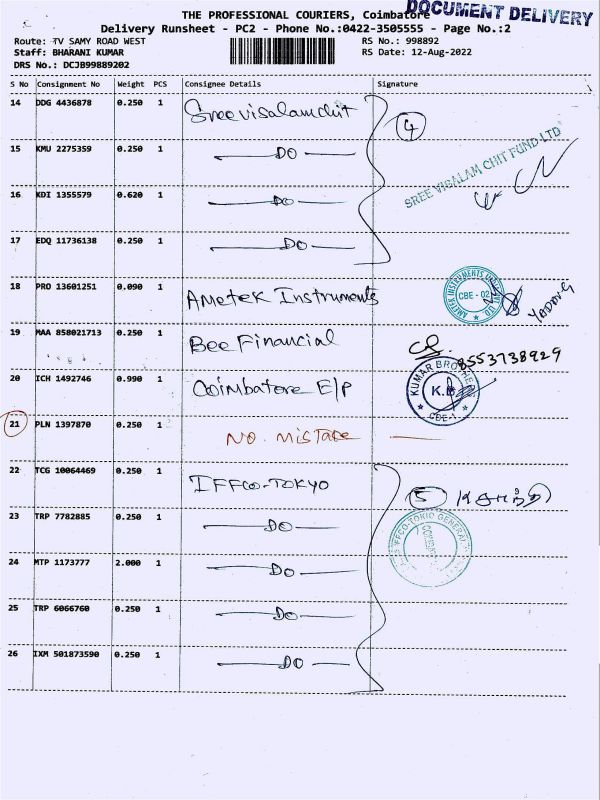 DOCUMENT DELIVERY
THE PROFESSIONAL COURIERS, Coimbatore
Delivery Runsheet - PC2 - Phone No.:0422-3505555 - Page No.:2
Route: TV SAMY ROAD WEST RS No.: 998892
Staff: BHARANI KUMAR RS Date: 12-Aug-2022
DRS No.: DCJB99889202
S No Consignment No Weight PCS Consignee Details Signature
14 DDG 4436878 0.250 1 Sreevisalamchit 4
SREE VISALAM CHIT FUND LTD
15 KMU 2275359 0.250 1 DO
16 KDI 1355579 0.620 1 DO
17 EDQ 11736138 0.250 1 DO
18 PRO 13601251 0.090 1 Ametek Instruments
CBE - 02
19 MAA 858021713 0.250 1 Bee Financial
8553738929
20 ICH 1492746 0.990 1 Coimbatore E/P
KUMAR BROTHERS K.B CBE-1
21 PLN 1397870 0.250 1 NO MISTAKE
22 TCG 10064469 0.250 1 IFFCO-TOKYO 5
IFFCO-TOKIO GENERAL
23 TRP 7782885 0.250 1 DO
24 MTP 1173777 2.000 1 DO
25 TRP 6066760 0.250 1 DO
26 IXM 501873590 0.250 1 DO